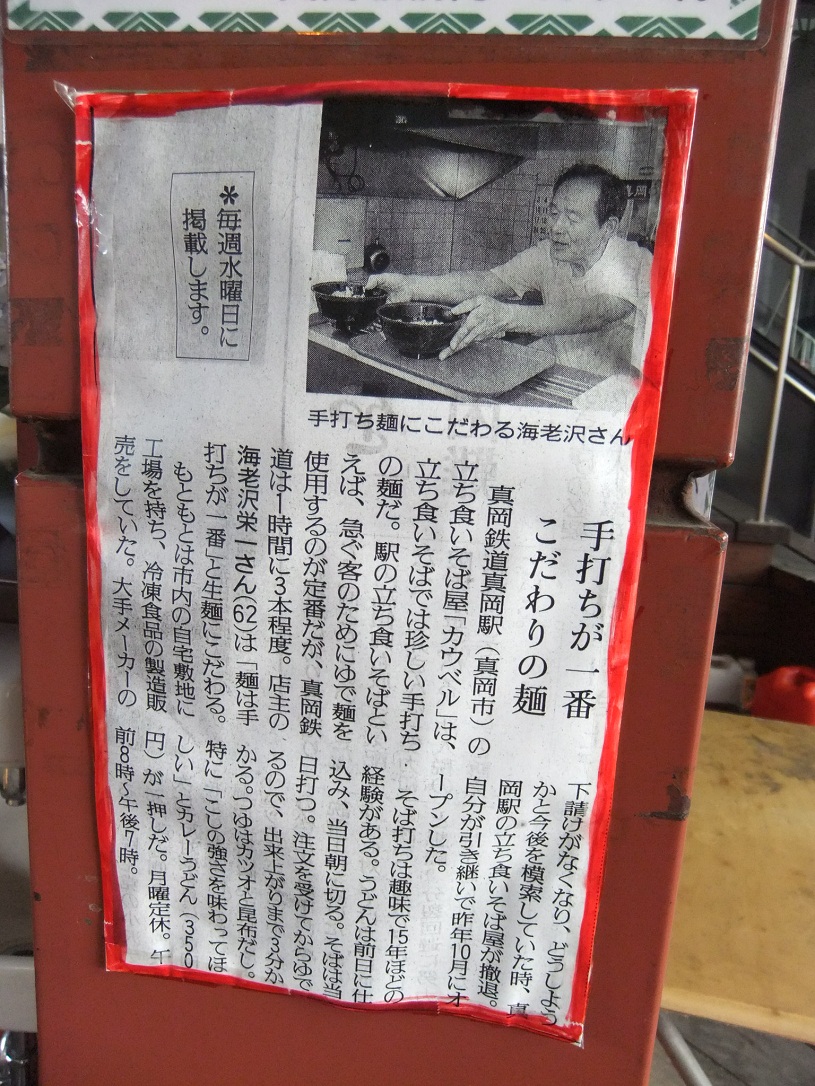 *毎週水曜日に
掲載します。
手打ち麺にこだわる海老沢さん
手打ちが一番
こだわりの麺
真岡鉄道真岡駅（真岡市）の
立ち食いそば屋「カウベル」は、
立ち食いそばでは珍しい手打ち
の麺だ。駅の立ち食いそばとい
えば、急ぐ客のためにゆで麺を
使用するのが定番だが、真岡鉄
道は1時間に3本程度。店主の
海老沢栄一さん(62)は「麺は手
打ちが一番」と生麺にこだわる。
もともとは市内の自宅敷地に
工場を持ち、冷凍食品の製造販
売をしていた。大手メーカーの
下請けがなくなり、どうしよう
かと今後を模索していた時、真
岡駅の立ち食いそば屋が撤退。
自分が引き継いで昨年10月にオ
ープンした。
そば打ちは趣味で15年ほどの
経験がある。うどんは前日に仕
込み、当日朝に切る。そばは当
日打つ。注文を受けてからゆで
るので、出来上がりまで3分か
かる。つゆはカツオと昆布だし。
特に「この強さを味わってほ
しい」とカレーうどん（350
円）が一押しだ。月曜定休。午
前8時〜午後7時。